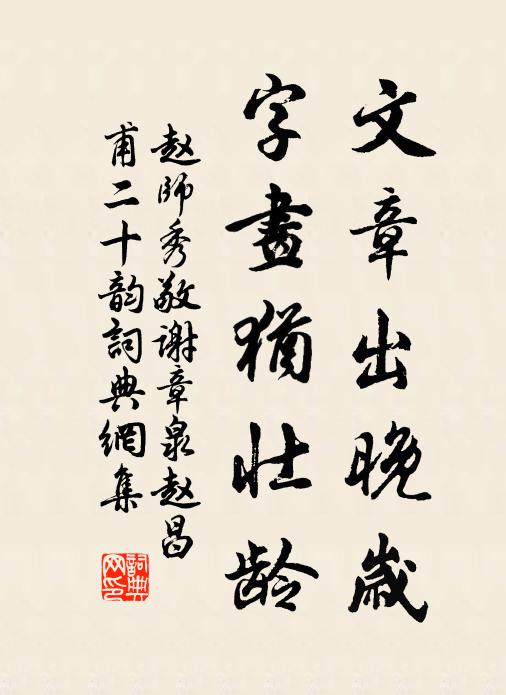 文章出晚歲
字畫猶壯齡
赵師秀敬谢章泉赵昌
甫二十韵詞典網集
詞典网印